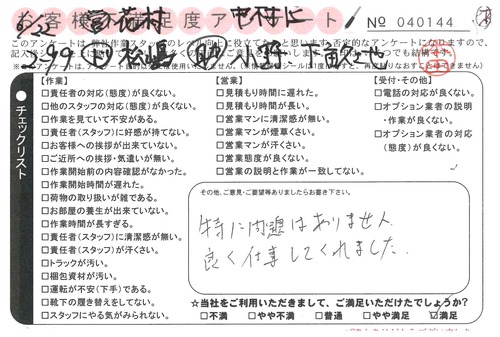 お客様満足度アンケート
No 040144
このアンケートは、弊社作業スタッフのレベル向上に役立てたいと思います。否定的なアンケートになりますので、
チェックリスト
【作業】
□責任者の対応(態度)が良くない。
□他のスタッフの対応(態度)が良くない。
□作業を見ていて不安がある。
□責任者(スタッフ)に好感が持てない。
□お客様への挨拶が出来ていない。
□ご近所への挨拶・気遣いが無い。
□作業開始前の内容確認がなかった。
□作業開始時間が遅れた。
□荷物の取り扱いが雑である。
□お部屋の養生が出来ていない。
□作業時間が長すぎる。
□責任者(スタッフ)に清潔感が無い。
□責任者(スタッフ)が汗くさい。
□トラックが汚い。
□梱包資材が汚い。
□運転が不安(下手)である。
□靴下の履き替えをしてない。
□スタッフにやる気がみられない。
【営業】
□見積もり時間に遅れた。
□見積もり時間が長い。
□営業マンに清潔感が無い。
□営業マンが煙草くさい。
□営業マンが汗くさい。
□営業態度が良くない。
□営業の説明と作業が一致してない。
【受付・その他】
□電話の対応が良くない。
□オプション業者の説明
・作業が良くない。
□オプション業者の対応
(態度)が良くない。
その他、ご意見・ご要望等ありましたらお書き下さい。
特に問題はありません
良く仕事してくれました。
☆当社をご利用いただきまして、ご満足いただけたでしょうか?
□不満 □やや不満 □普通 □やや満足 ☑満足